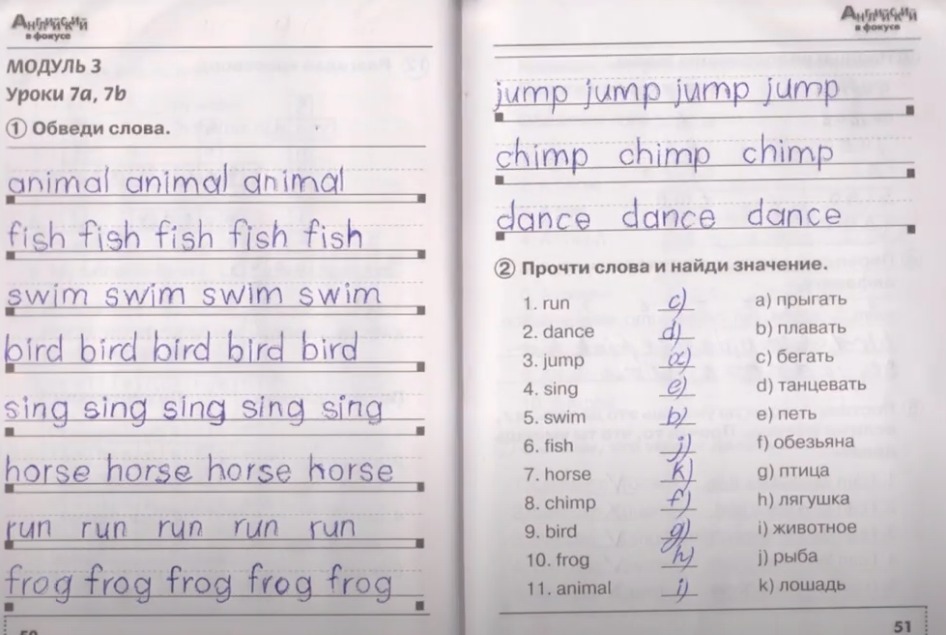 Английский
в фокусе
МОДУЛЬ 3
Уроки 7a, 7b
① Обведи слова.
animal animal animal
fish fish fish fish fish
swim swim swim swim
bird bird bird bird bird
sing sing sing sing sing
horse horse horse horse
run run run run run
frog frog frog frog frog
Английский
в фокусе
jump jump jump jump
chimp chimp chimp
dance dance dance
② Прочти слова и найди значение.
1. run c) a) прыгать
2. dance d) b) плавать
3. jump a) c) бегать
4. sing e) d) танцевать
5. swim b) e) петь
6. fish j) f) обезьяна
7. horse k) g) птица
8. chimp f) h) лягушка
9. bird g) i) животное
10. frog h) j) рыба
11. animal i) k) лошадь
51